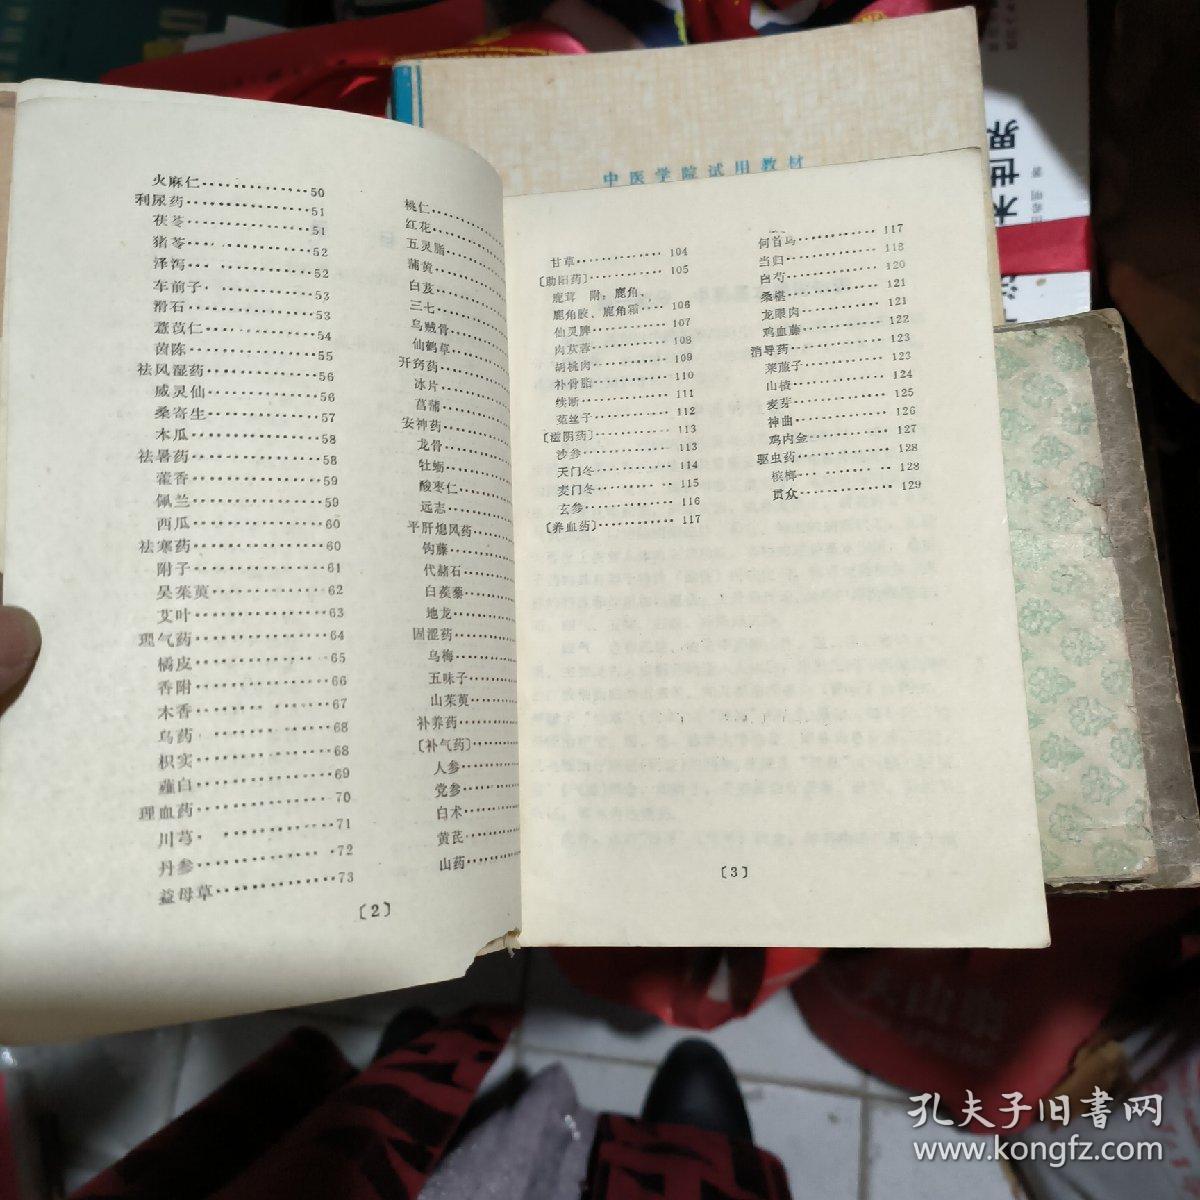 中医学院试用教材
火麻仁…………50
利尿药…………51
茯苓…………51
猪苓…………52
泽泻…………52
车前子…………53
滑石…………53
薏苡仁…………54
茵陈…………55
祛风湿药…………56
威灵仙…………56
桑寄生…………57
木瓜…………58
祛暑药…………58
藿香…………59
佩兰…………59
西瓜…………60
祛寒药…………60
附子…………61
吴茱萸…………62
艾叶…………63
理气药…………64
橘皮…………65
香附…………66
木香…………67
乌药…………68
枳实…………68
薤白…………69
理血药…………70
川芎…………71
丹参…………72
益母草…………73
桃仁…………
红花…………
五灵脂…………
蒲黄…………
白芨…………
三七…………
乌贼骨…………
仙鹤草…………
开窍药…………
冰片…………
菖蒲…………
安神药…………
龙骨…………
牡蛎…………
酸枣仁…………
远志…………
平肝熄风药…………
钩藤…………
代赭石…………
白蒺藜…………
地龙…………
固涩药…………
乌梅…………
五味子…………
山茱萸…………
补养药…………
〔补气药〕…………
人参…………
党参…………
白术…………
黄芪…………
山药…………
〔2〕
甘草…………104
〔助阳药〕…………105
鹿茸 附：鹿角、
鹿角胶、鹿角霜…………106
仙灵脾…………107
肉苁蓉…………108
胡桃肉…………109
补骨脂…………110
续断…………111
菟丝子…………112
〔滋阴药〕…………113
沙参…………113
天门冬…………114
麦门冬…………115
玄参…………116
〔养血药〕…………117
何首乌…………117
当归…………118
白芍…………120
桑椹…………121
龙眼肉…………121
鸡血藤…………122
消导药…………123
莱菔子…………123
山楂…………124
麦芽…………125
神曲…………126
鸡内金…………127
驱虫药…………128
槟榔…………128
贯众…………129
〔3〕
孔夫子旧書网
www.kongfz.com